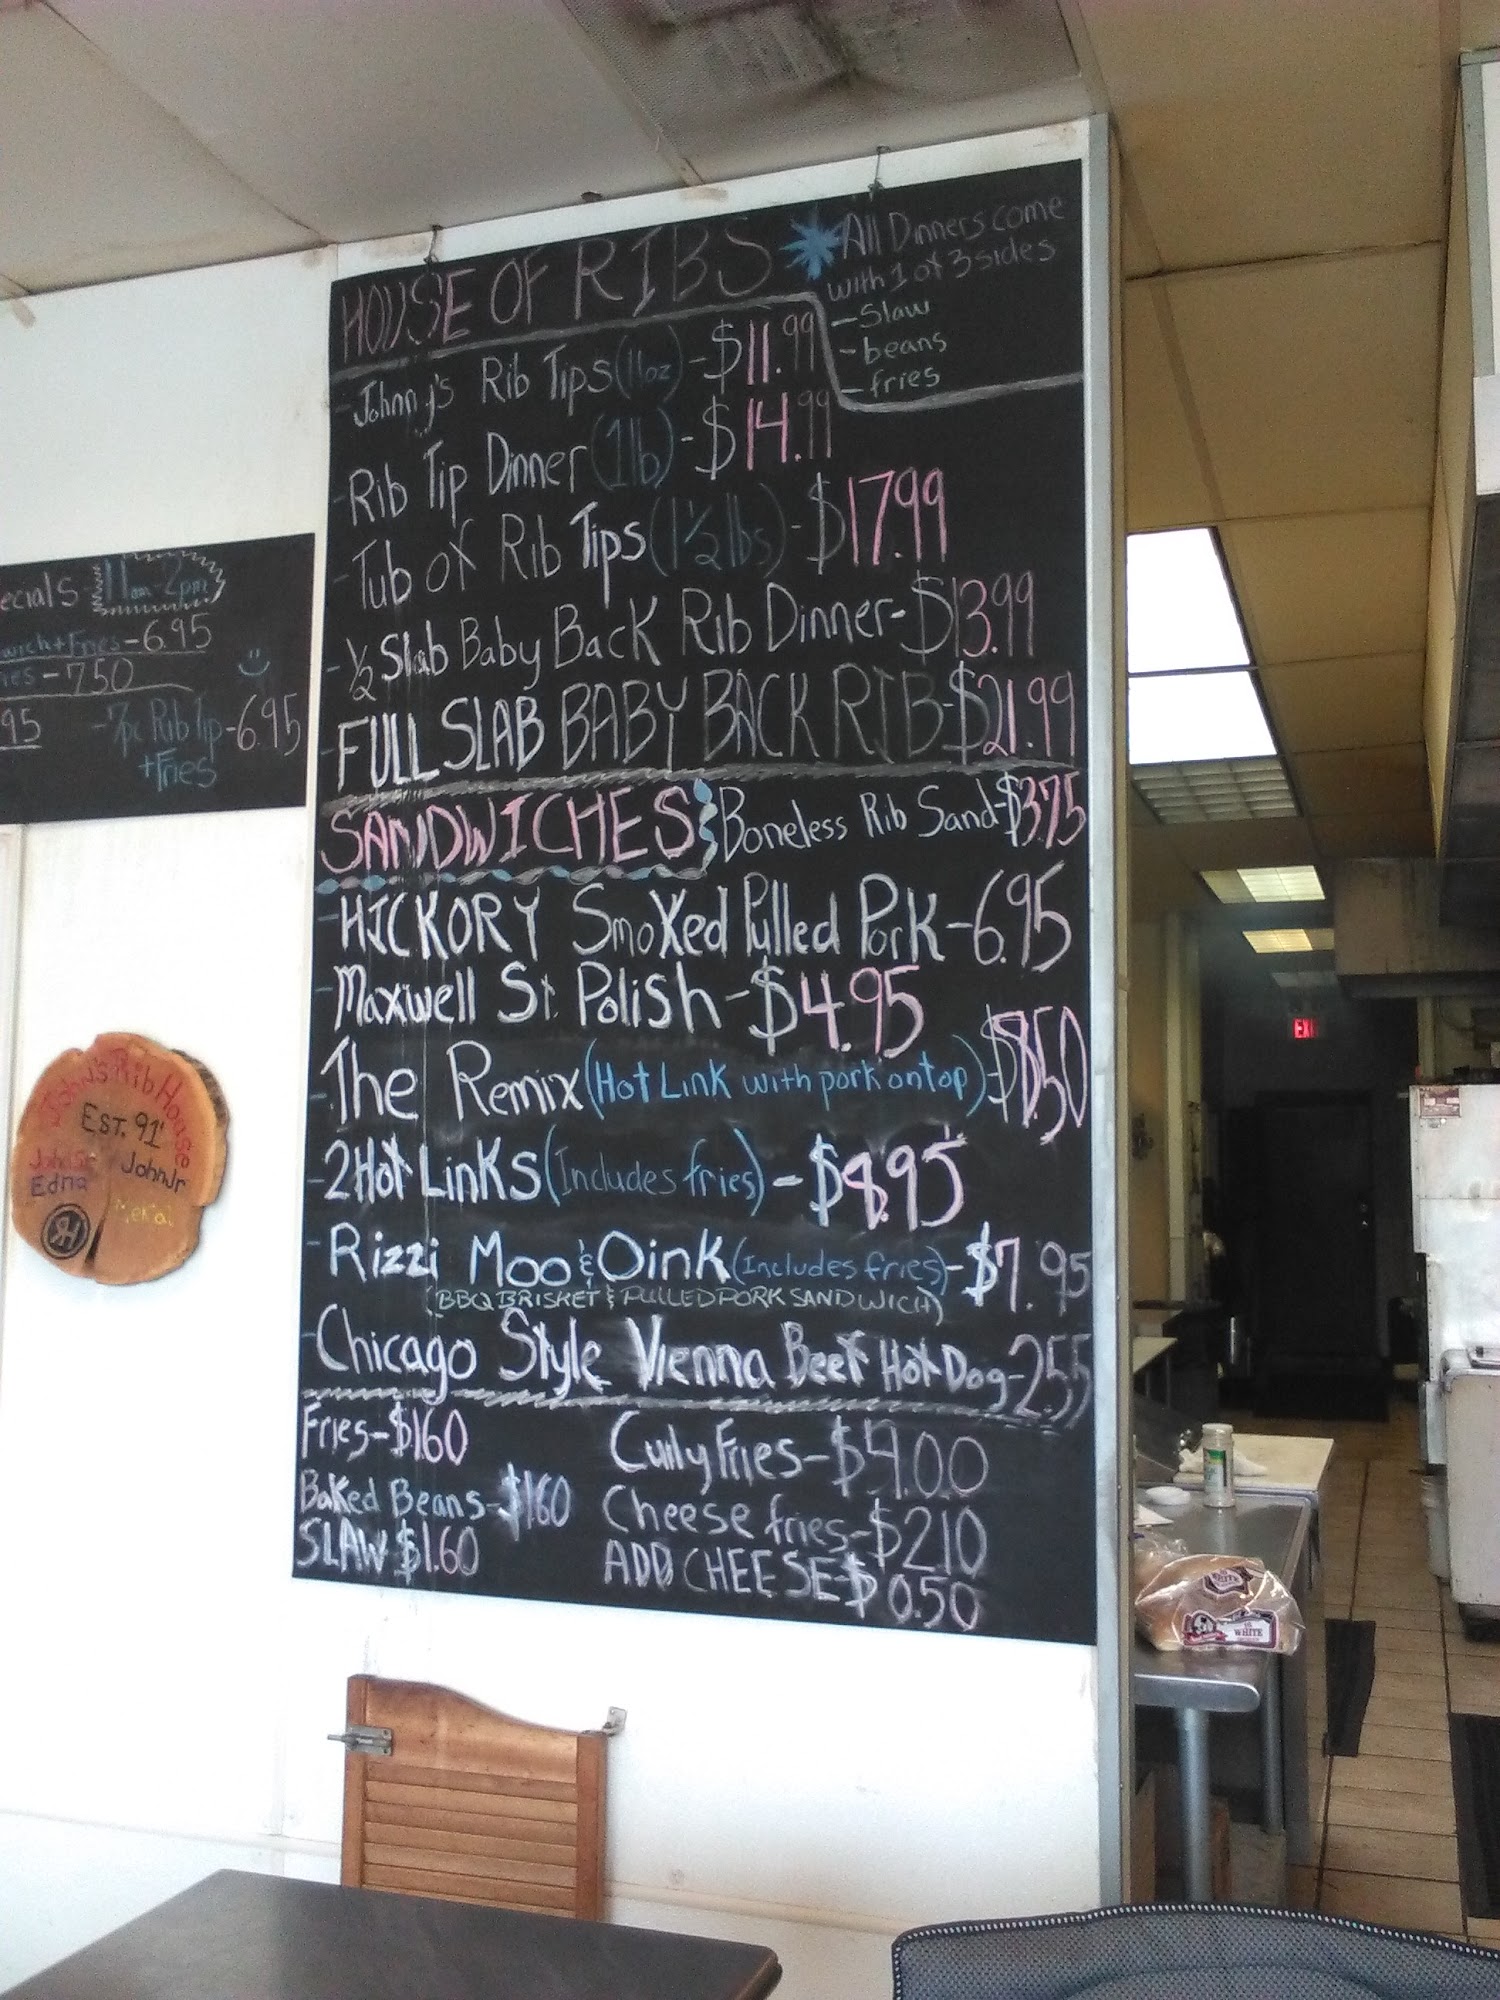 HOUSE OF RIBS
All Dinners come
with 1 of 3 sides
- Slaw
- beans
- fries
- Johnny's Rib Tips (11oz) - $11.99
- Rib Tip Dinner (1lb) - $14.99
- Tub of Rib Tips (1½ lbs) - $17.99
- ½ Slab Baby Back Rib Dinner - $13.99
- FULL SLAB BABY BACK RIB - $21.99
SANDWICHES Boneless Rib Sand - $3.75
- HICKORY Smoked Pulled Pork - 6.95
- Maxwell St. Polish - $4.95
- The Remix (Hot Link with pork on top) - $8.50
- 2 Hot Links (Includes fries) - $8.95
- Rizzi Moo & Oink (Includes fries) - $7.95
(BBQ BRISKET & PULLED PORK SANDWICH)
- Chicago Style Vienna Beef Hot Dog - 2.55
Fries - $1.60
Baked Beans - $1.60
SLAW $1.60
Curly Fries - $.00
Cheese fries - $2.10
ADD CHEESE - $0.50
ecials 11am-2pm
wich + Fries - 6.95
ies - 7.50
95 - 7pc Rib Tip - 6.95
+ Fries
John's Rib House
EST. 91'
John Sr John Jr
Edna
RH
EXI
WHITE
WHITE